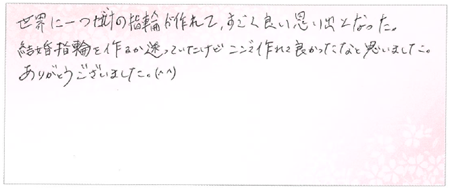 世界に一つだけの指輪が作れて、すごく良い思い出となった。
結婚指輪を作るか迷っていたけど ここで作れて良かったなと思いました。
ありがとうございました。(^^)